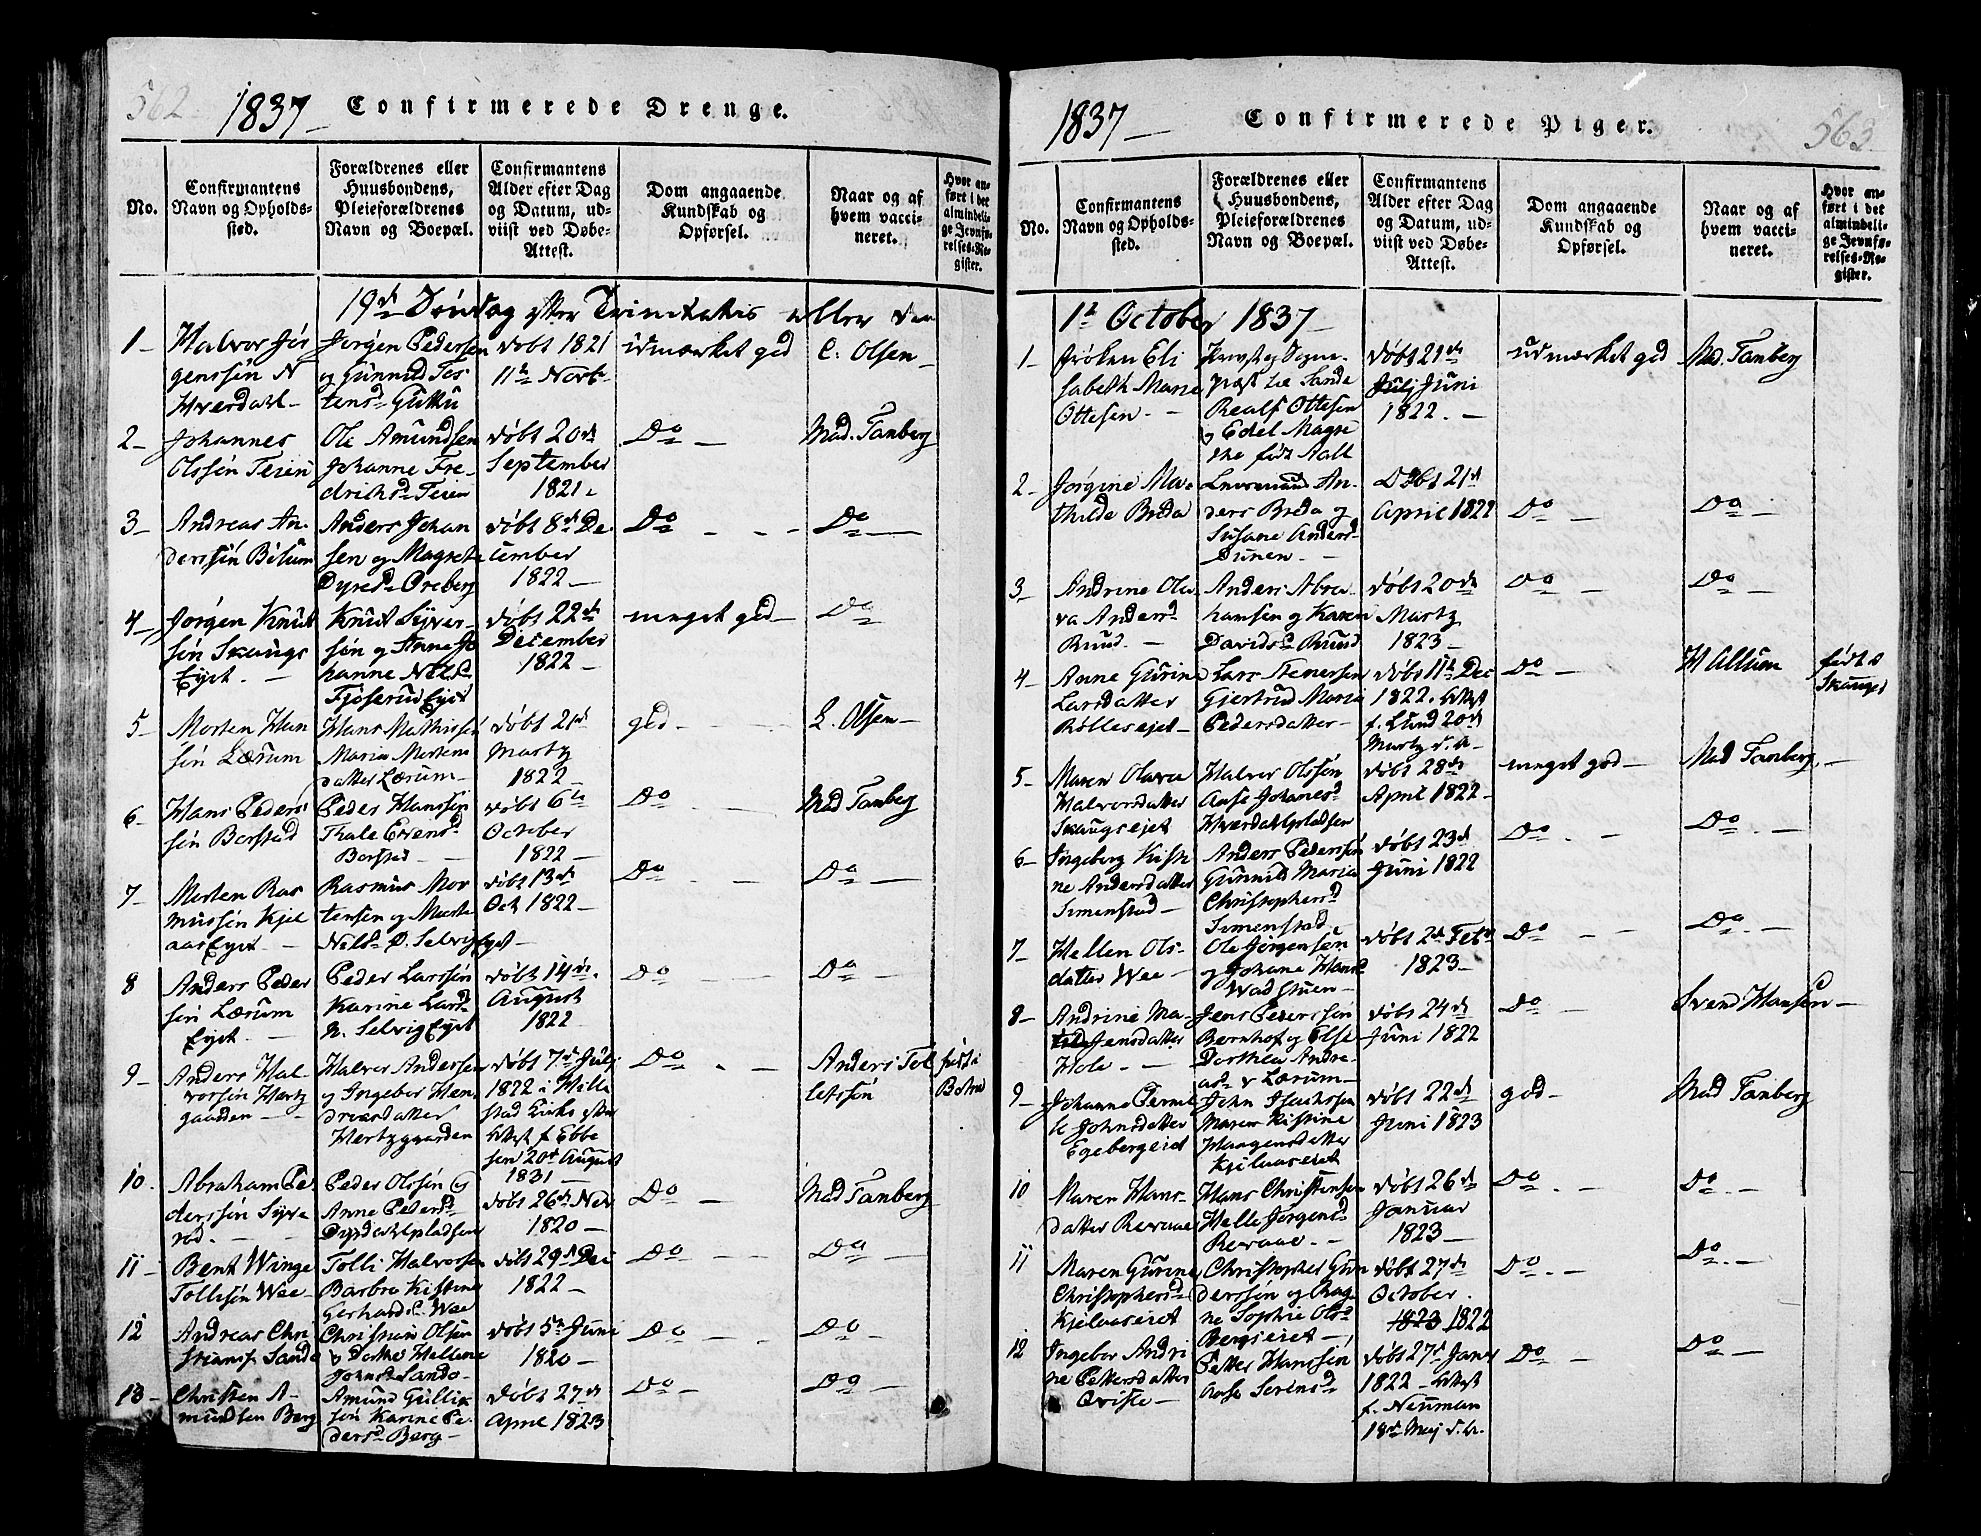 562
1837 Confirmerede Drenge.
No.
Confirmantens
Navn og Opholds-
sted.
Forældrenes eller
Huusbondens,
Pleieforældrenes
Navn og Boepæl.
Confirmantens
Alder efter Dag
og Datum, ud-
viist ved Døbe-
Attest.
Dom angaaende
Kundskab og
Opførsel.
Naar og af
hvem vacci-
neret.
Hvor an-
ført i det
almindeli-
ge Jevnfø-
relses-Re-
gister.
19de Søndag efter Trinitatis eller den
1
Halvor Jør
genssøn N
Hverdahl
Jørgen Pedersen
og Gunnild
tensd Guttu
døbt 1821
11te Novbr
udmærket god
C. Olsen
2
Johannes
Olssøn Teien
Ole Amundsen
Johanne Fre-
driksd Teien
døbt 20de
September
1821
Do
Mad. Tanberg
3
Andreas An-
derssøn Bilum
Anders Johan
sen og Magrete
Dyresd Oreberg
døbt 8de De
cember
1822
Do
Do
4
Jørgen Knut
søn Skaugs
Eyet.
Knut Syver-
søn og Anne Jo
hanne Nilsd
Fjøserud Eyet
døbt 22de
December
1822
meget god
Do
5
Morten Han
søn Lærum
Hans Mathissøn
Maria Mortens
datter Lærum
døbt 21de
Martz
1822
god
L. Olsen
6
Hans Peders
søn Borstad
Peder Hanssøn
Thale Evensd
Borstad
døbt 6te
October
1822
Do
Mad Tanberg
7
Morten Ras
mussøn Kjel
aas Eyet.
Rasmus Mor
tensen og Marte
Nilsd D. Selvig Eyet
døbt 13de
Oct 1822
Do
Do
8
Anders Peder
søn Lærum
Eyet.
Peder Larssøn
Karine Larsd
N. Selvig Eyet
døbt 14de
August
1822
Do
Do
9
Anders Hal-
vorssøn Hertz
gaarden
Halvor Andersen
og Ingebor Han
Hertzgaarden
døbt 7de Julj
1822 i Hille
stad Kirke efter
Attest f. Ebbe
sen 20de August
1831
Do
Anders Tol
lefssøn
født i
Botne
10.
Abraham Pe
derssøn Syve
rød.
Peder Olssøn og
Anne Pedersd
Dyrdahlpladsen
døbt 26de Nov
1820
Do
Mad Tanberg
11
Bent Winge
Tollissøn Wee
Tolli Halvorsen
Barbro Kistine
Gerhardsd Wee
døbt 29de Dec
1822
Do
Do
12
Andreas Chri
stians. Sando
Christian Olsen
& Dorthe Hellene
Johnsd Sando
døbt 5te Juni
1820
Do
Do
13
Christen A-
mundsen Berg
Amund Gullik
søn Karine Pe
dersd Berg
døbt 27de
April 1823
Do
Do
563
1837 Confirmerede Piger.
No.
Confirmantens
Navn og Opholds-
sted.
Forældrenes eller
Huusbondens,
Pleieforældrenes
Navn og Boepæl.
Confirmantens
Alder efter Dag
og Datum, ud-
viist ved Døbe-
Attest.
Dom angaaende
Kundskab og
Opførsel.
Naar og af
hvem vacci-
neret.
Hvor an-
ført i det
almindeli-
ge Jevnfø-
relses-Re-
gister.
1te October 1837
1
Frøken Eli
sabeth Marie
Ottesen.
Provst og Sogne-
præst til Sande
Realf Ottesen
& Edel Magre
the født Aall
døbt 21de
Julj Juni
1822.
udmærket god
Mad. Tanberg
2
Jørgine Ma-
thilde Breda
An-
ders Breda og
Susane Andersd
Sunen.
Døbt 21de
April 1822
Do
Do
3
Andrine Ola
va Andersd
Ruud.
Anders Abra-
hamsen og Karen
Davidsd Ruud
døbt 20de
Martz
1823
Do
Do
4
Anne Gurine
Larsdatter
Røllesejet
Lars Stenersen
Gjertrud Maria
Pedersdatter
døbt 11te Dec
1822. Attest
f. Lund 20de
Martz d. A.
Do
H Allum
født i
Skauger
5
Maren Olava
Halvorsdatter
Skaugsejet
Halvor Olssøn
Aase Johanesd
Hverdahlpladsen
døbt 28de
April 1822
meget god
Mad Tanberg
6
Ingeborg Kisti
ne Andersdatter
Simenstad
Anders Pedersøn
Gunnild Maria
Christophersd
Simenstad
døbt 23de
Juni 1822
Do
Do
7
Hellen Ols-
datter Wee
Ole Jørgensen
og Johane Hansd
Wadstuen
døbt 2de Feb
1823
Do
Do
8
Andrine Ma-
Jensdatter
Hole
Jens Pederssøn
Bernhof og Else
Dorthea Andre-
asd v Lærum
døbt 24de
Juni 1822
Do
Svend Hansen
9
Johanne Pernil
le Johnsdatter
Egebergeiet
John Isachssen
Maren Kistine
Haagensdatter
Kjelaaseiet
døbt 22de
Juni 1823
god
Mad Tanberg
10
Maren Hans-
datter Revaae
Hans Christensen
Helle Jørgensd
Revaae
døbt 26de
Januar
1823
Do
Do
11
Maren Gurine
Christophersd
Kjelaaseiet
Christopher Gun
derssøn og Rag
ne Sophie Olsd
Bergseiet
døbt 27de
October
1823 1822
Do
Do
12
Ingebor Andri
ne Pettersdatter
Qviste
Petter Hanssøn
Aase Sørensd
døbt 27de Janv
1822 Attest
f. Neuman
18de Maj d. A.
Do
Do